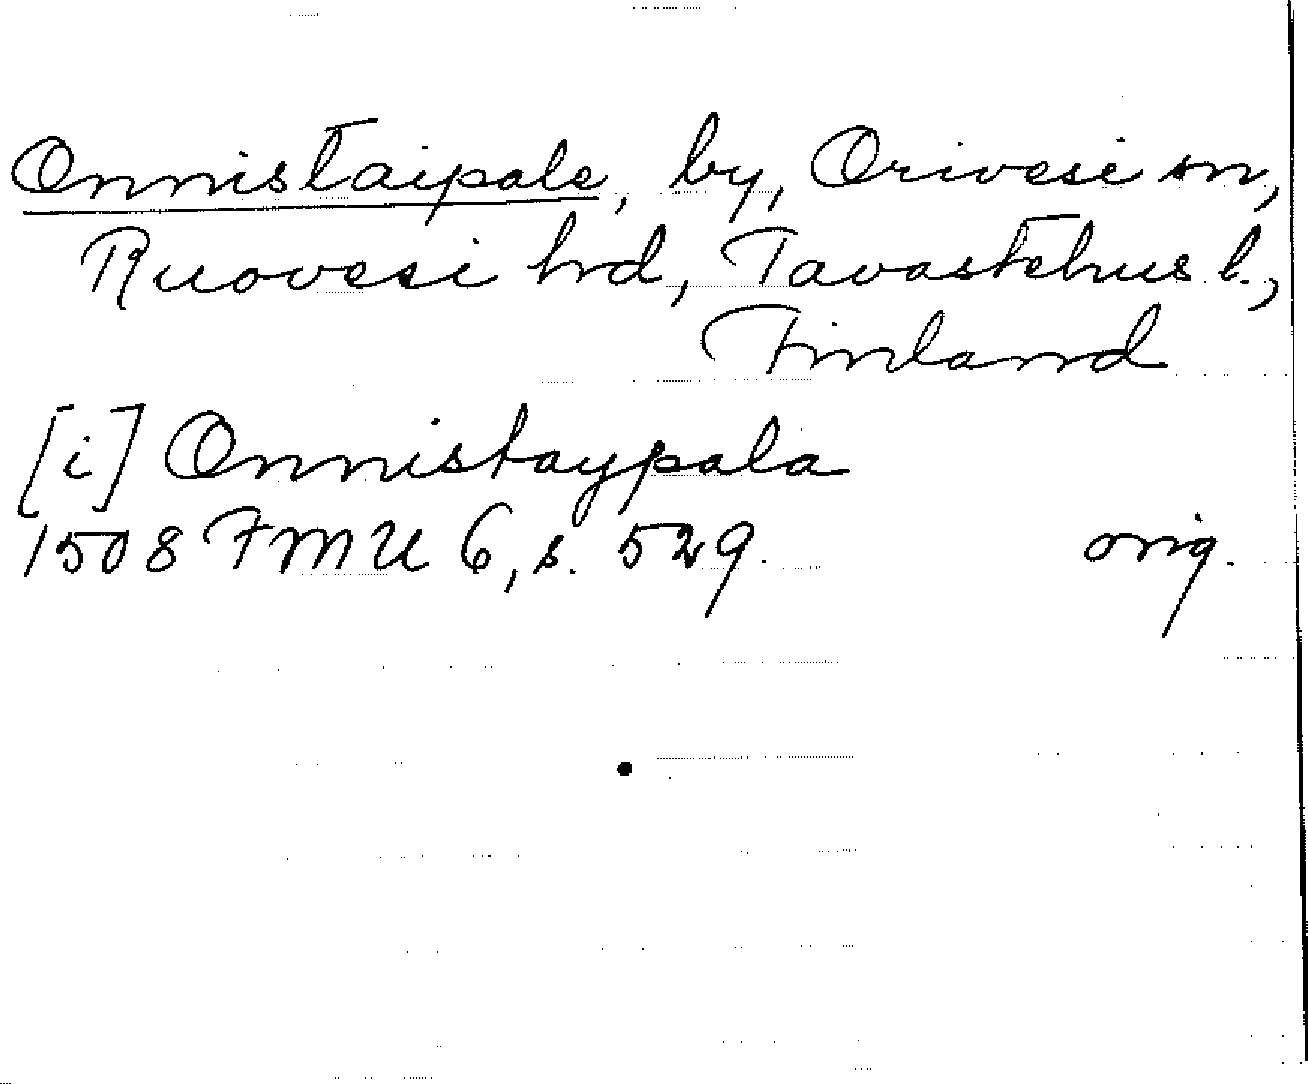 Onnistaipale, by, Orivesi sn,
Ruovesi hrd, Tavastehus l.,
Finland
[i] Onnistaypala
1508 FMU 6, s. 529. orig.